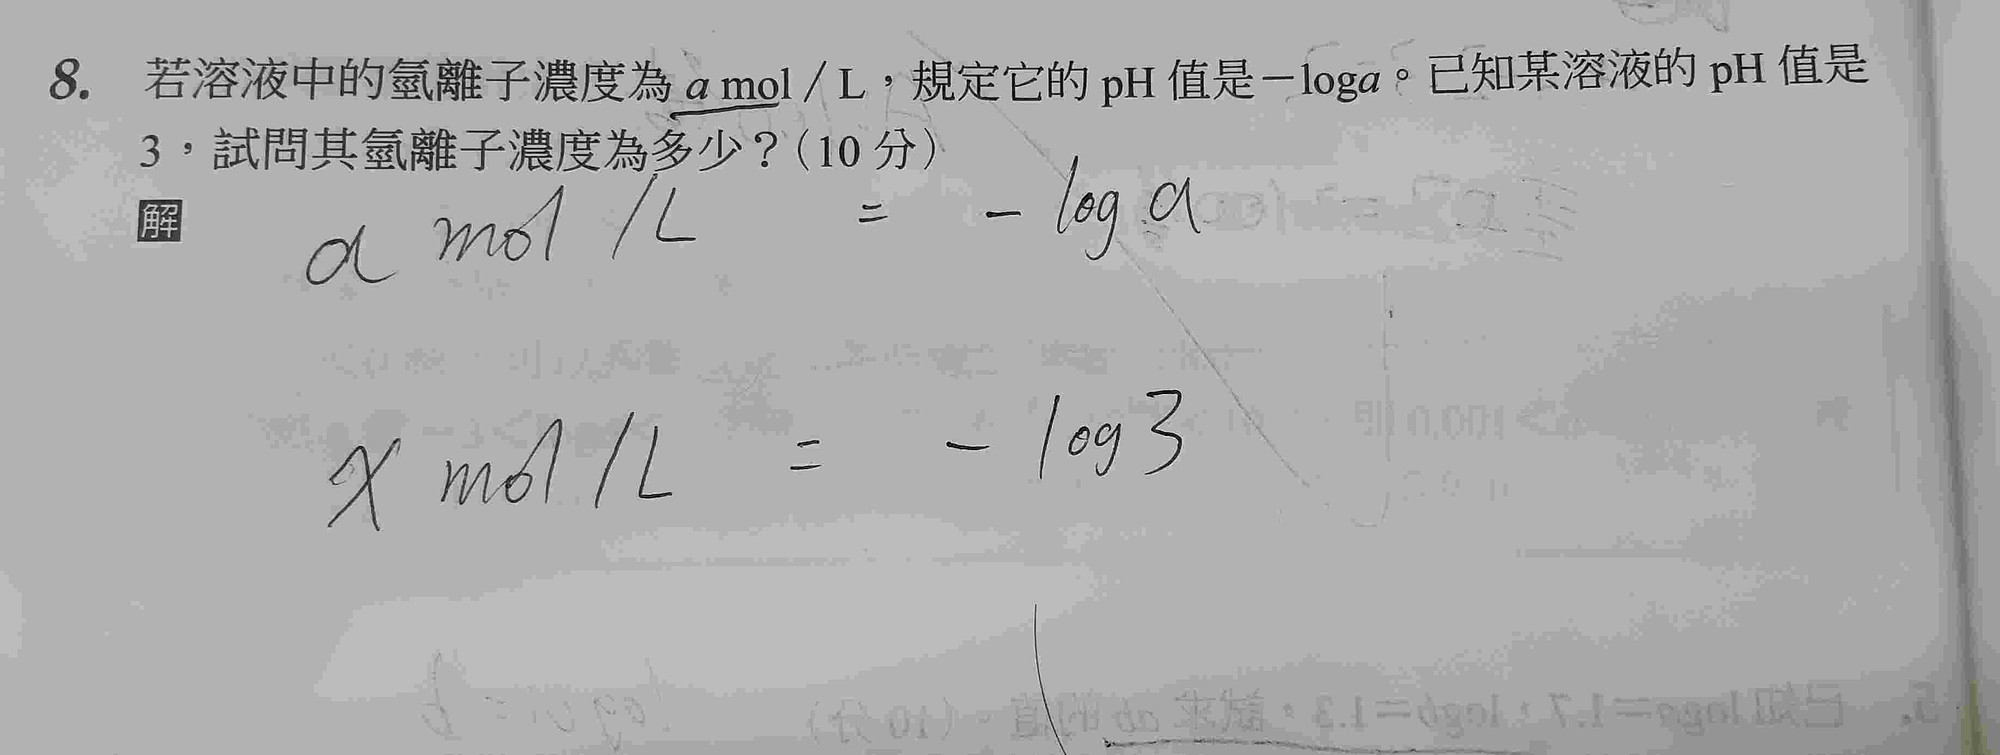 8. 若溶液中的氫離子濃度為 a mol/L，規定它的 pH 值是－loga。已知某溶液的 pH 值是
3，試問其氫離子濃度為多少？（10 分）
解
a mol /L = - log a
x mol /L = - log 3